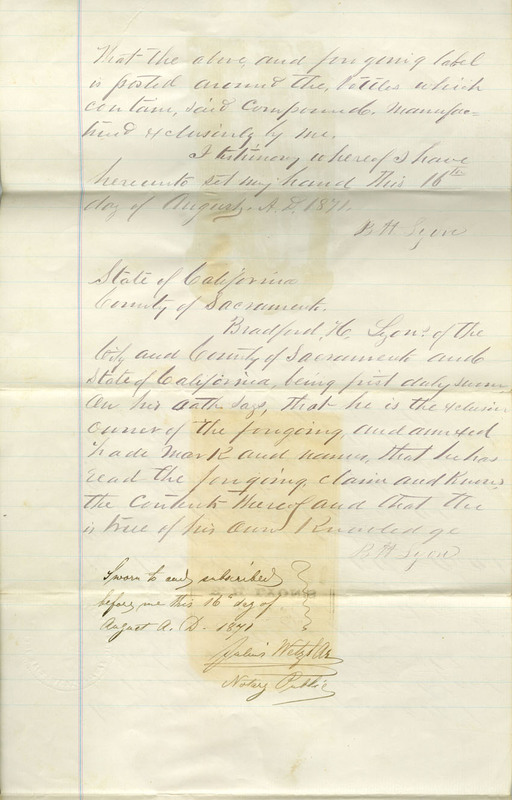 That the above and forgoing label
is posted around the bottles which
contain, said Compound. Manufac=
tured exclusively by me.
I testimony whereof I have
hereunto set my hand this 16th
day of August. A. D. 1871.
B H Lyon
State of California
County of Sacramento.
Bradford, H, Lyon, of the
City and County of Sacramento and
State of California, being first duly sworn
On his Oath says, that he is the exclusive
Owner of the forgoing and annexed
trade Mark and names, that he has
read the forgoing claim and Knows
the Contents thereof and that the
is true of his Own Knowledge
B H Lyon
Sworn to and subscribed
before me this 16 day of
August A. D. 1871
Julius Wetzlar
Notary Public